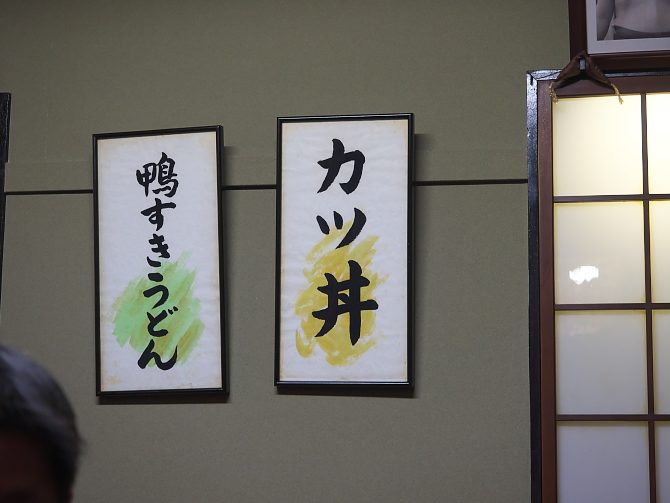 鴨すきうどん
カツ丼